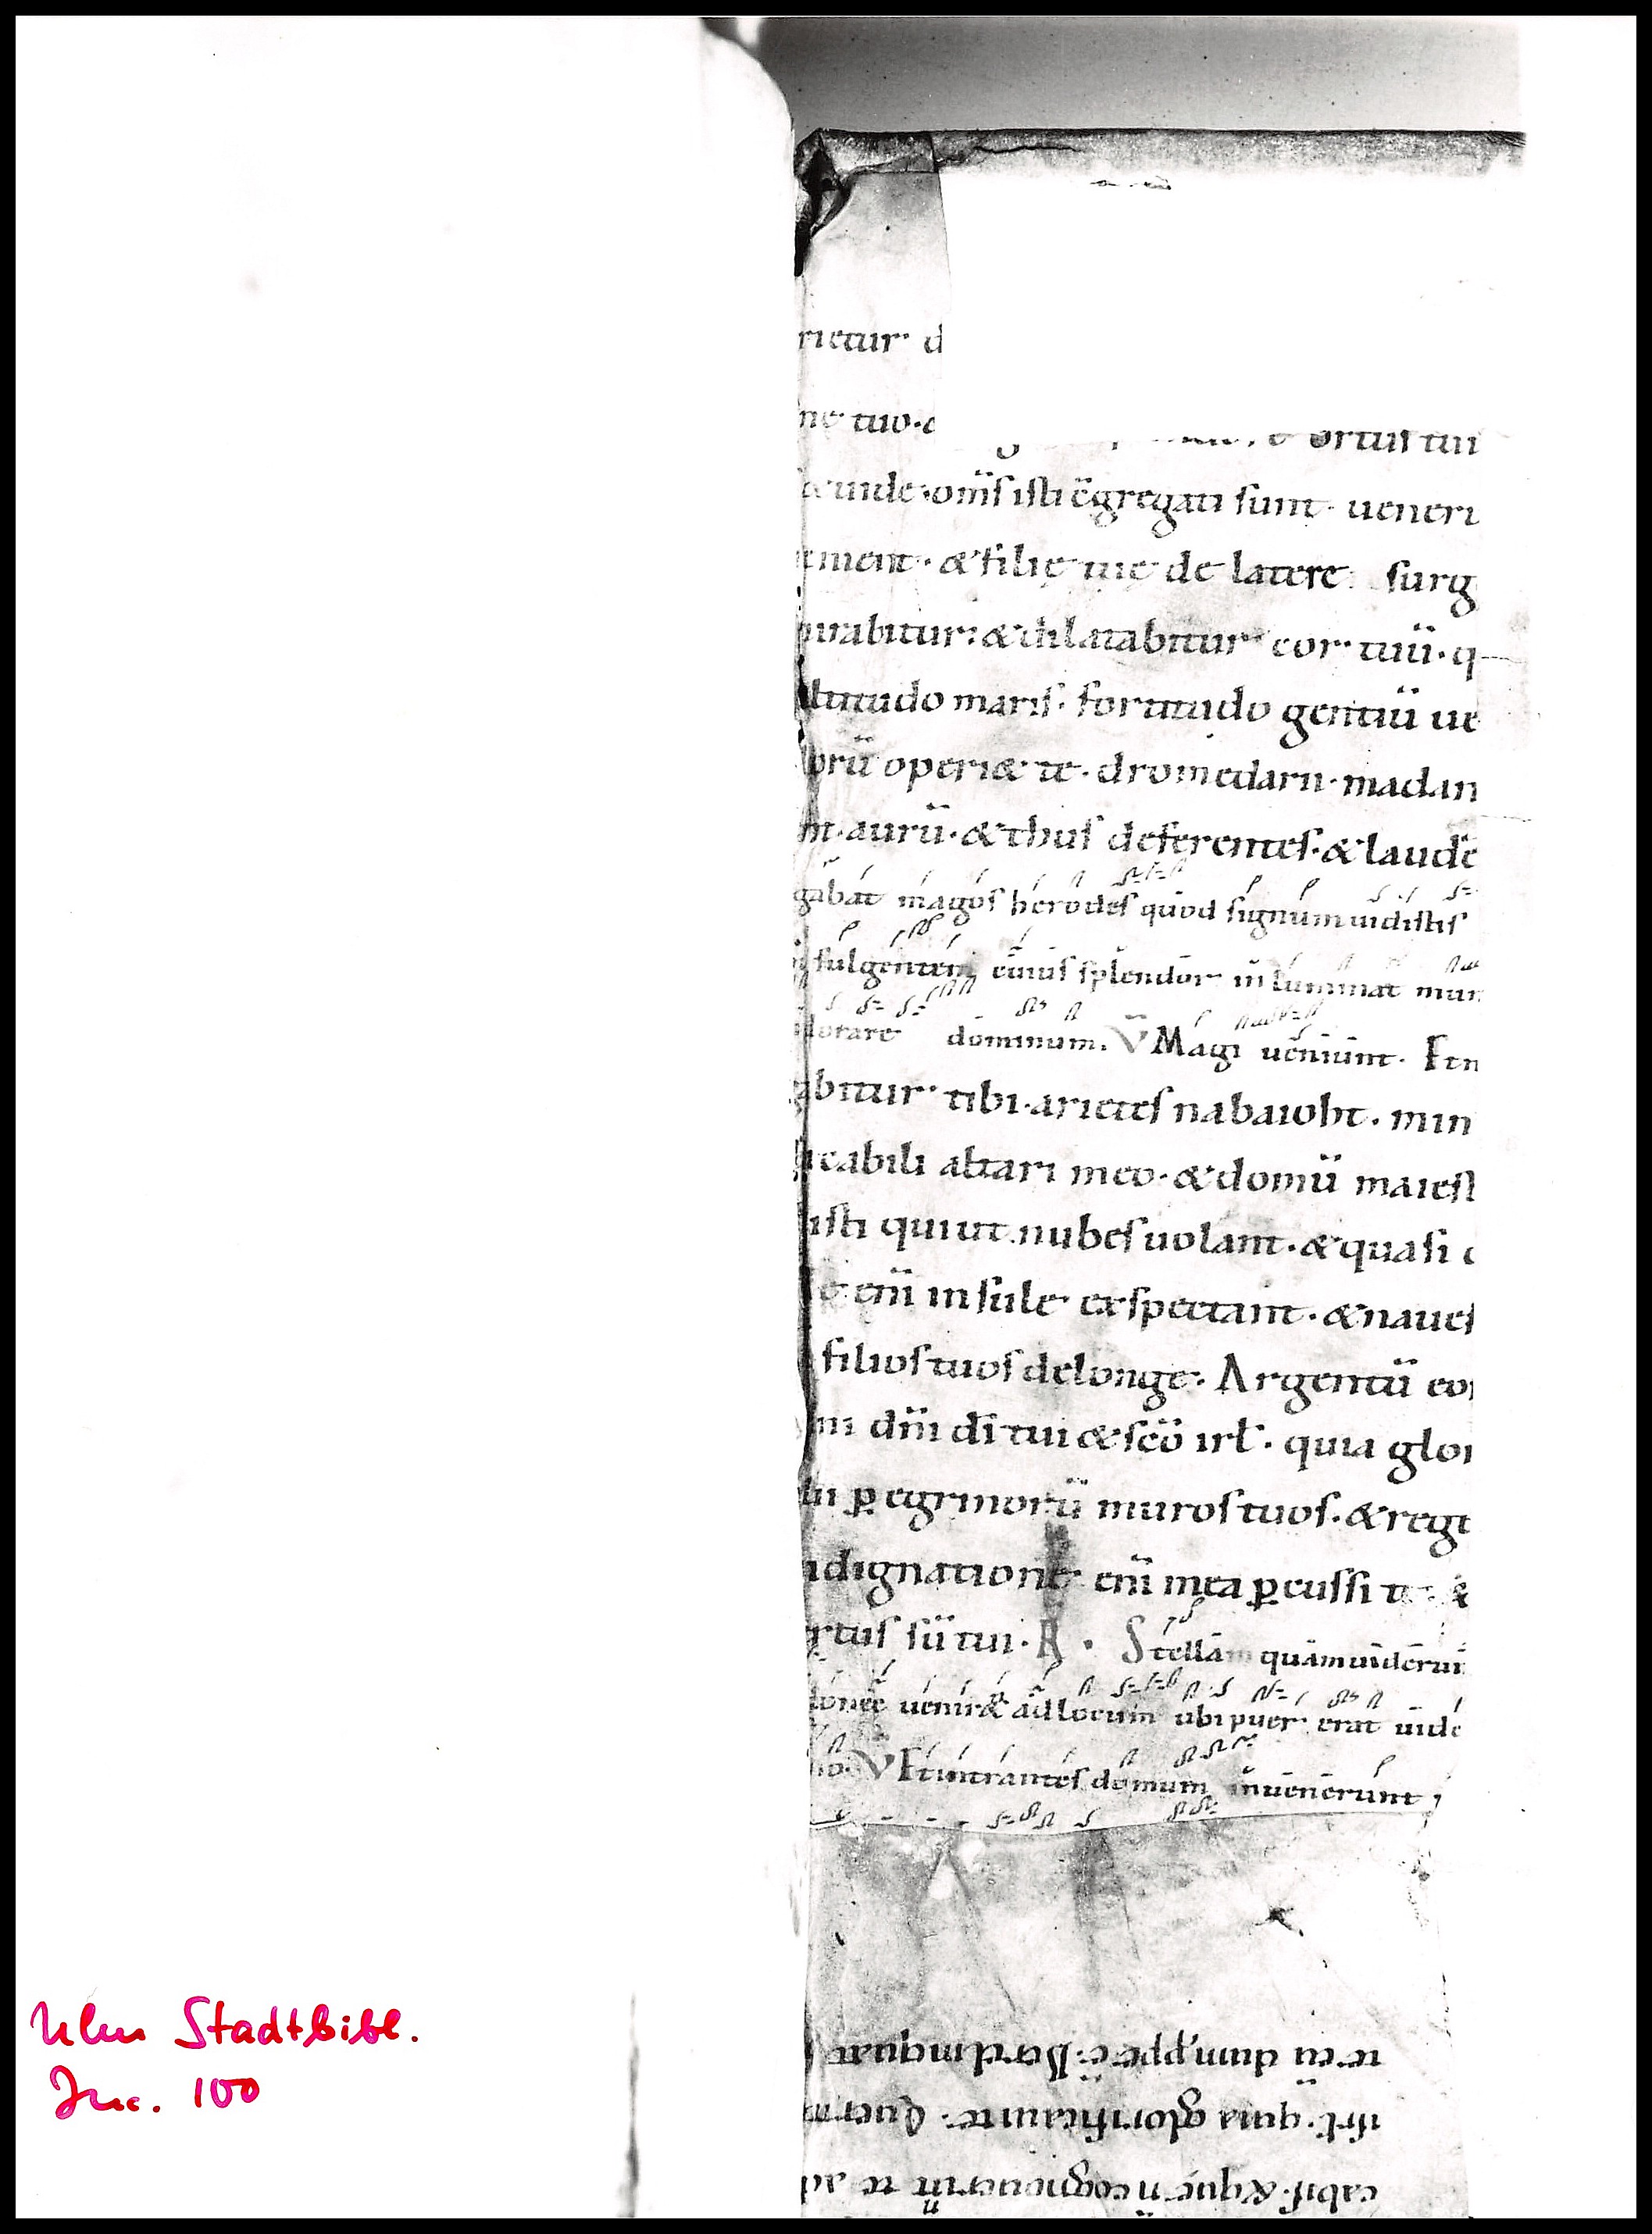 rietur d
ne tuo.
ortus tui
& uide. om̅s isti c̅gregati sunt. ueneri
ment. & filię tue de latere surg
irabitur. & dilatabitur cor tuu̅. q
ltitudo maris. fortitudo gentiu̅ ue
oru̅ operi& te. dromedarii. madian
nt. auru̅. & thus deferentes. & laude̅
gabat magos herodes quod signum uidistis
fulgentem cuius splendor inluminat mun
dorare dominum. V̅ Magi ueniunt. Et n
abitur tibi. arietes nabaioht. min
icabili altari meo. & domu̅ maiest
isti qui ut nubes uolant. & quasi c
e eni̅ insule exspectant. & naues
filios tuos de longe. Argentu̅ eor
ni dn̅i di̅ tui & sc̅o irl̅. quia glor
lii p̱egrinoru̅ muros tuos. & rege
ndignatione eni̅ mea p̱cussi te. &
ortus su̅ tui. R̅. Stellam quam uiderun
donec uenir& ad locum ubi puer erat uide
no. V Et intrantes domum inuenerunt
isrl̅. quia glorificauit te. Querit
cabis. & que n̅ cognouer̅t te ad
Ulm Stadtbibl.
Inc. 100